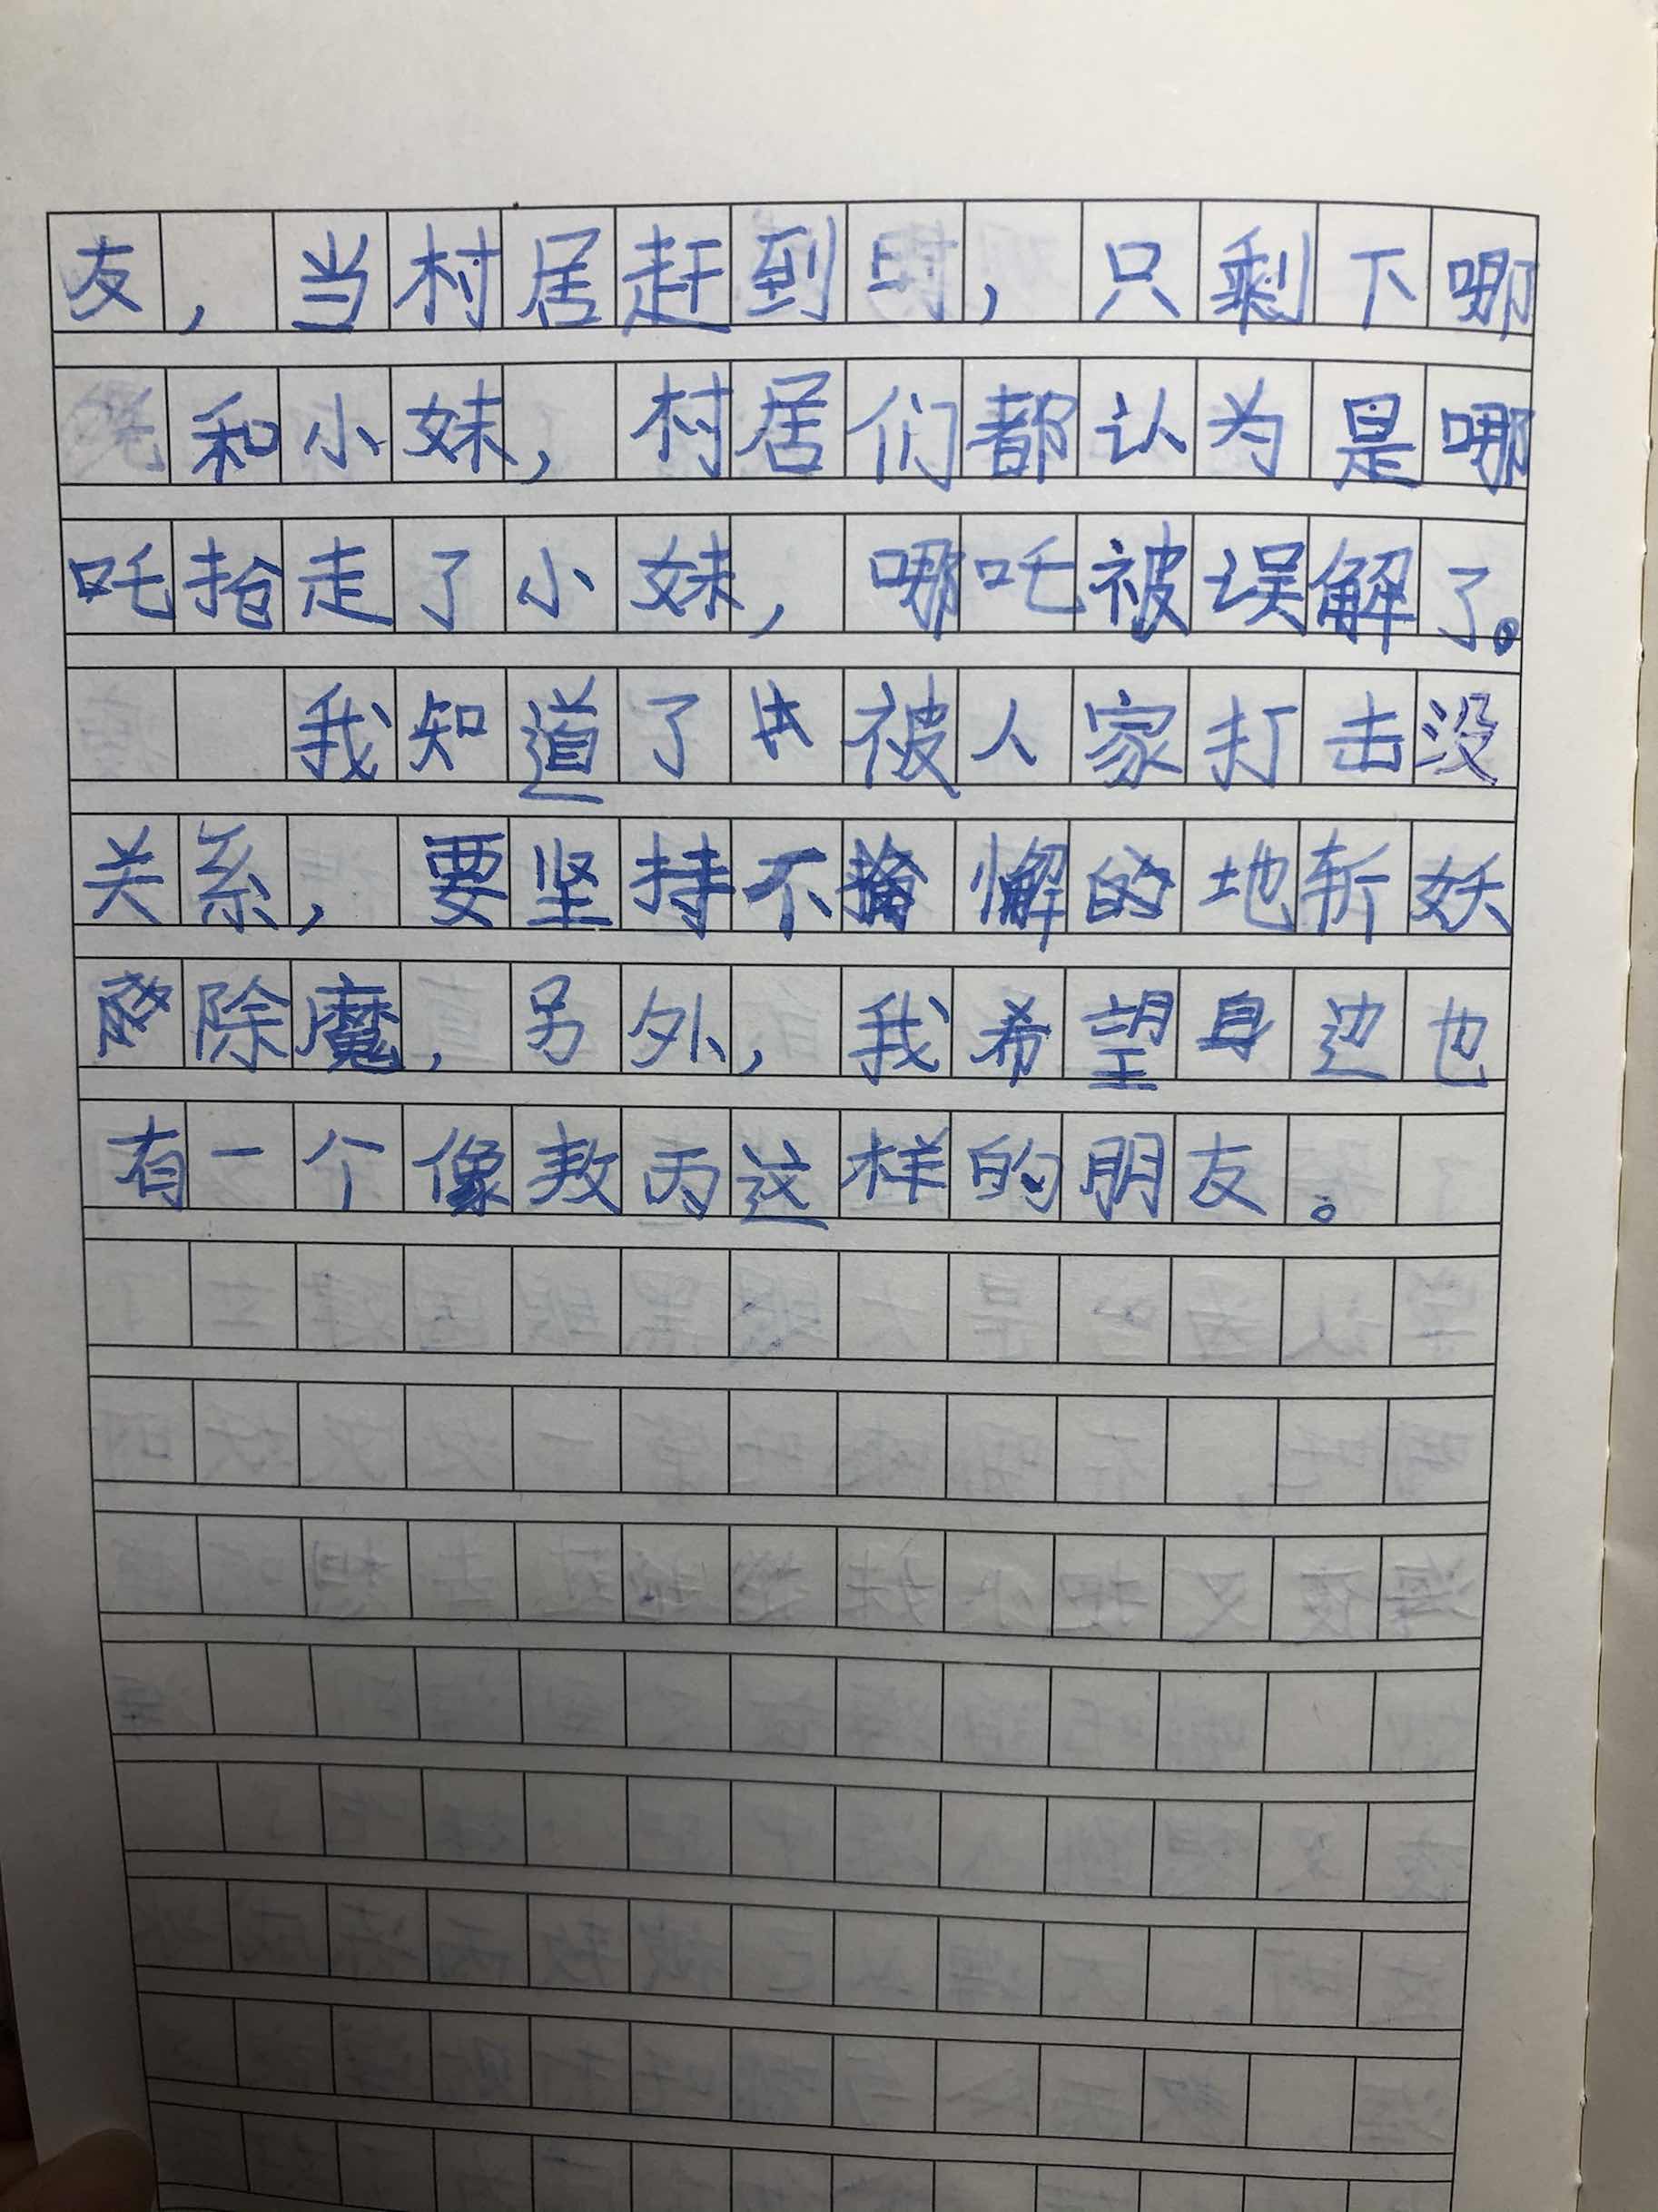 友，当村居赶到时，只剩下哪
和小妹，村居们都认为是哪
吒抢走了小妹，哪吒被误解了。
我知道了被人家打击没
关系，要坚持不懈的地斩妖
除魔，另外，我希望身边也
有一个像敖丙这样的朋友。